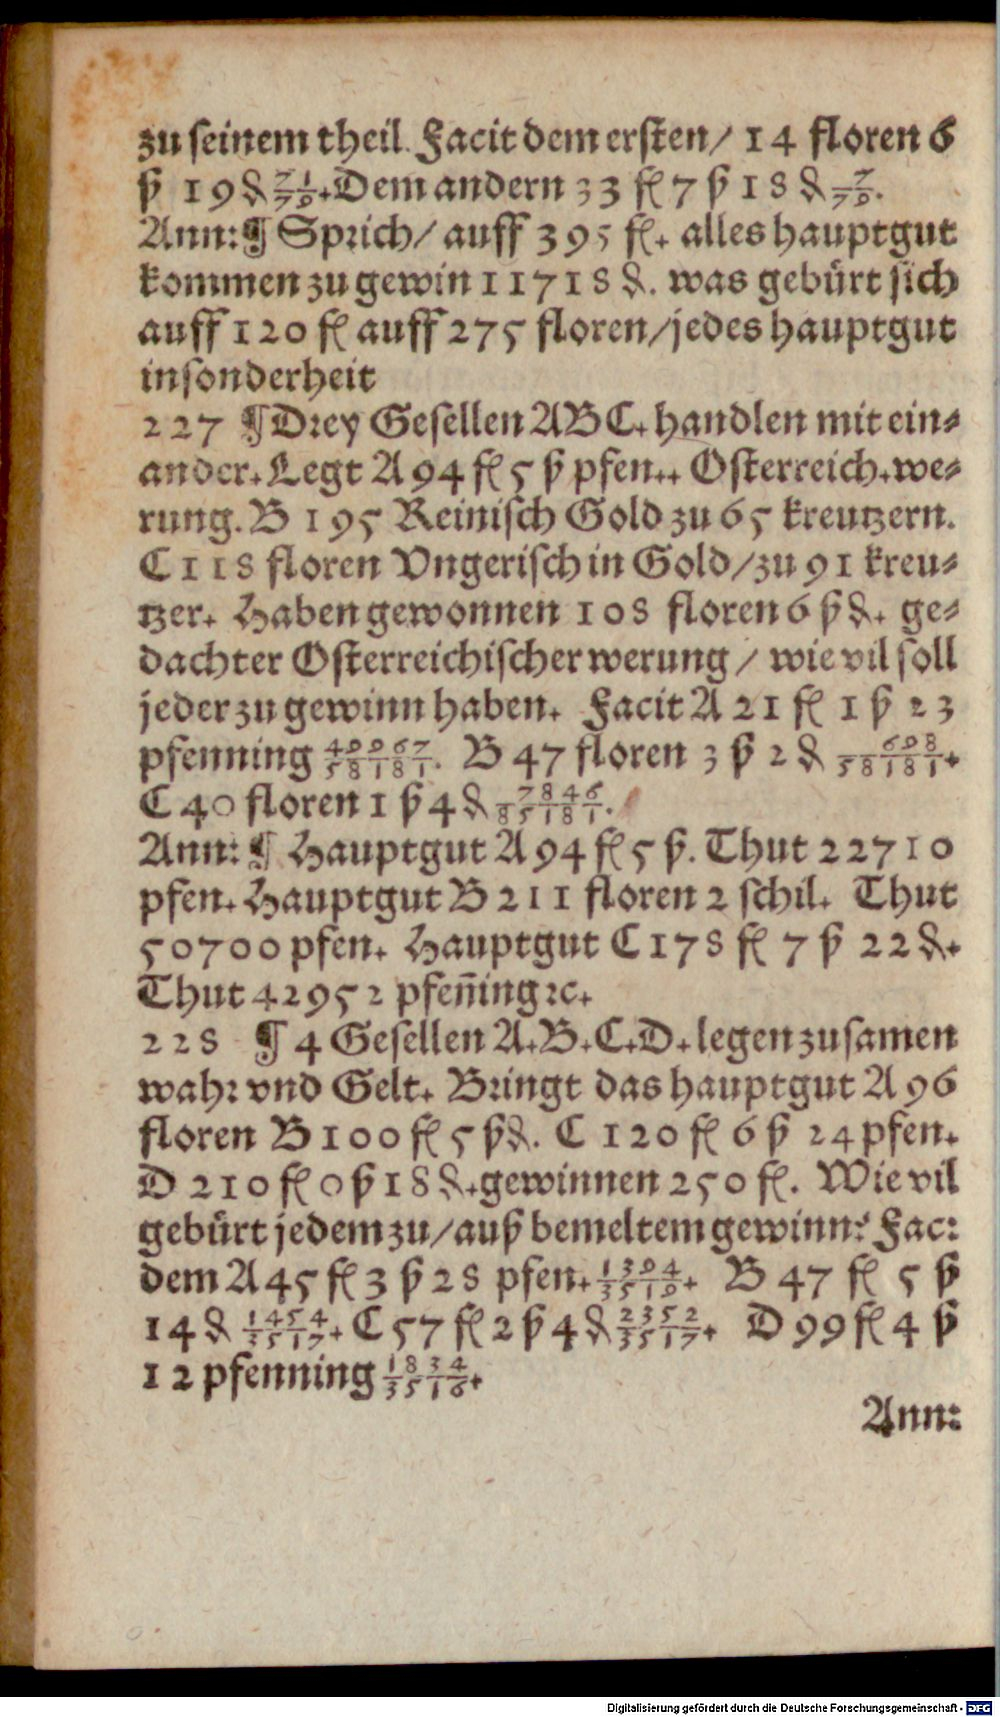 zu seinem theil. Facit dem ersten/ 14 floren 6
ß 19 ₰ 71/79. Dem andern 33 fl 7 ß 18 ₰ 7/79.
Ann: ¶ Sprich/ auff 395 fl. alles hauptgut
kommen zu gewin 11718 ₰. was gebürt sich
auff 120 fl auff 275 floren/ jedes hauptgut
insonderheit
227 ¶ Drey Gesellen ABC. handlen mit ein⸗
ander. Legt A 94 fl 5 ß pfen.. Osterreich. we⸗
rung. B 195 Reinisch Gold zu 65 kreutzern.
C 118 floren Vngerisch in Gold/ zu 91 kreu⸗
tzer. Haben gewonnen 108 floren 6 ß ₰. ge⸗
dachter Osterreichischer werung / wie vil soll
jeder zu gewinn haben. Facit A 21 fl 1 ß 23
pfenning 40067/58181. B 47 floren 3 ß 2 ₰ 608/58181.
C 40 floren 1 ß 4 ₰ 7846/85181.
Ann: ¶ Hauptgut A 94 fl 5 ß. Thut 22710
pfen. Hauptgut B 211 floren 2 schil. Thut
50700 pfen. Hauptgut C 178 fl 7 ß 22 ₰.
Thut 42952 pfen̄ing ꝛc.
228 ¶ 4 Gesellen A. B. C. D. legen zusamen
wahr vnd Gelt. Bringt das hauptgut A 96
floren B 100 fl 5 ß ₰. C 120 fl 6 ß 24 pfen.
D 210 fl 0 ß 18 ₰. gewinnen 250 fl. Wie vil
gebürt jedem zu/ auß bemeltem gewinn? Fac:
dem A 45 fl 3 ß 28 pfen. 1304/3510. B 47 fl 5 ß
14 ₰ 1454/3517. C 57 fl 2 ß 4 ₰ 2352/3517. D 99 fl 4 ß
12 pfenning 1834/3516.
Ann:
Digitalisierung gefördert durch die Deutsche Forschungsgemeinschaft - DFG